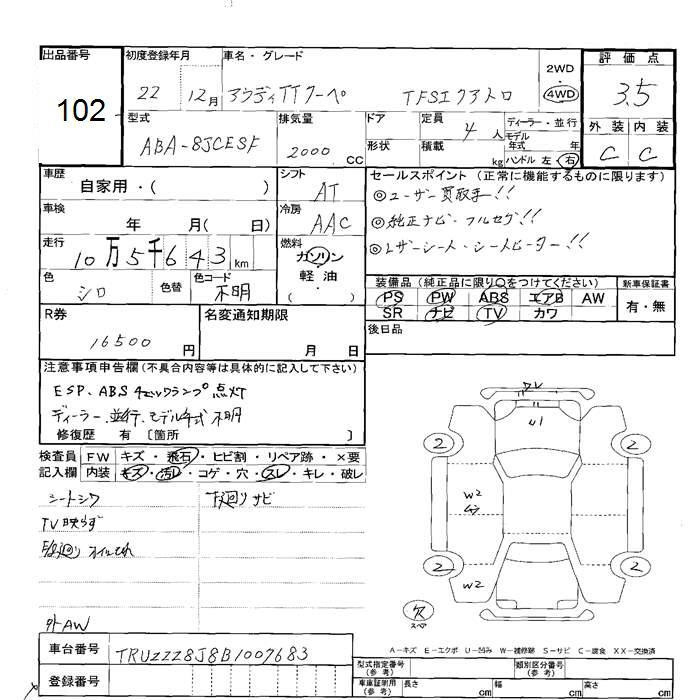 出品番号 初度登録年月 車名・グレード 2WD 評価点
102 22 12月 アウディTTクーペ TFSIクアトロ 4WD 3.5
型式 排気量 ドア 定員 ディーラー・並行 外装 内装
ABA-8JCESF 2000 CC 4 人 モデル年式 年 C C
形状 積載 kg ハンドル 左・右
車歴 シフト セールスポイント(正常に機能するものに限ります)
自家用・( ) AT ◎ユーザー買取車!!
車検 冷房 ◎純正ナビ・フルセグ!!
年 月( 日) AAC ◎レザーシート・シートヒーター!!
走行 燃料
10万5千643km ガソリン
色 色替 色コード 軽油
シロ 不明 ( ・ )
装備品(純正品に限り○をつけてください) 新車保証書
PS PW ABS エアB AW 有・無
SR ナビ TV カワ
R券 名変通知期限 後日品
16500 円 月 日
注意事項申告欄(不具合内容等は具体的に記入して下さい)
ESP、ABSチェックランプ点灯
ディーラー、並行、モデル年式不明
修復歴 有 〔箇所 〕
検査員 FW キズ・飛石・ヒビ割・リペア跡・×要
記入欄 内装 キズ・汚レ・コゲ・穴・スレ・キレ・破レ
シートシワ 下廻りサビ
TV映らず
オイルもれ
外AW
U1
2 2
W2
2 2
W2
欠
スペア
A-キズ E-エクボ U-凹み W-補修跡 S-サビ C-腐食 XX-交換済
車台番号 TRUZZZ8J8B1007683
登録番号
型式指定番号(参考) 類別区分番号(参考)
車庫証明用(参考) 長さ cm 幅 cm 高さ cm